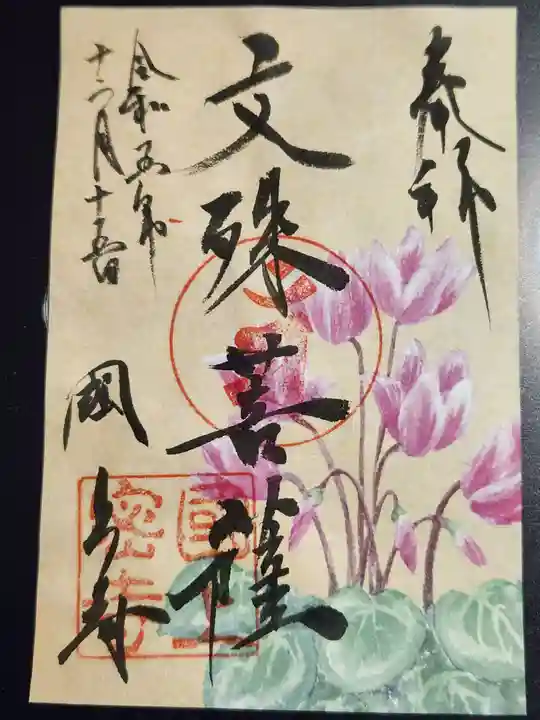 奉拝
文殊菩薩
令和五年
十二月十五日
國上寺